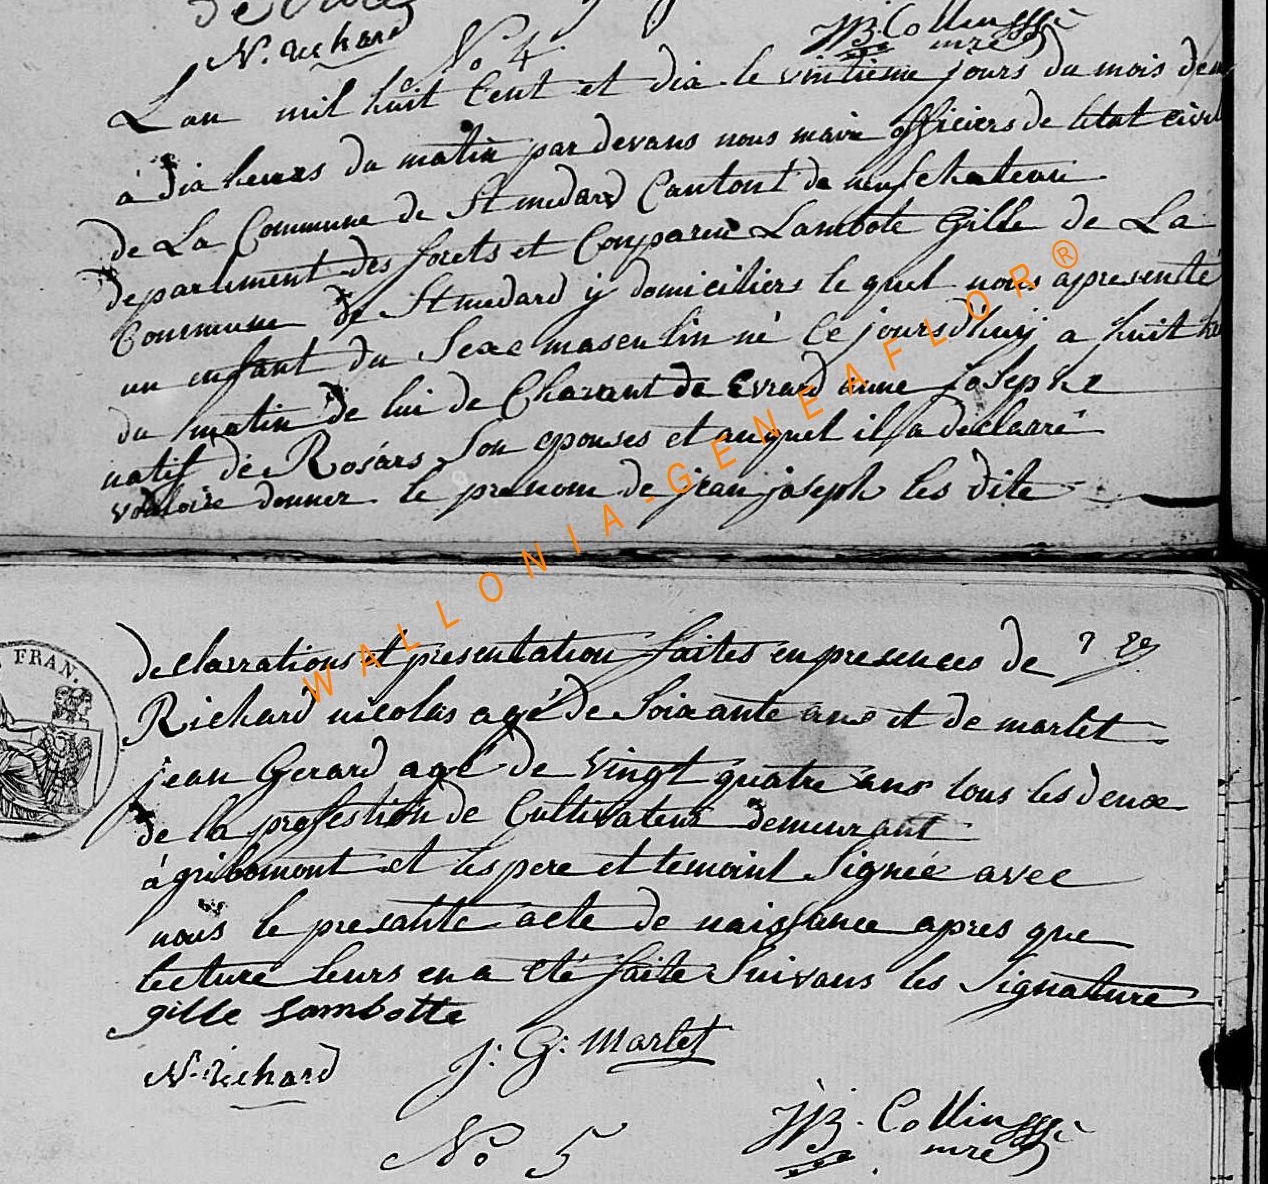 N. richard
J.B. Collin
mre
No 4
Lan mil huit Cent et dix le vintieme jours du mois de
à dix heures du matin par devans nous maire officiers de letat civil
de La Commune de St medard Cantont de neufchateau
departement des forets et Comparu Lambote Gille de La
Commune de St medard y domiciliers le quel nous apresenté
un enfant du Sexe masculin né Ce jours d'huy a huit
du matin de lui de Charant de Evrard anne Josephe
natif de Rosars Son epouses et auquel il a declarré
vouloire donner le prenom de jean joseph les dite
declarrations et presentation faites en presences de
Richard nicolas agé de Soixante ans et de martet
jean Gerard agé de vingt quatre ans tous les deux
de la profestion de Cultivateur demeurant
à gribomont et les pere et temoint Signée avec
nous le presante acte de naissance apres que
lecture leurs en a eté faite Suivans les Signature
gille Lambotte
N. richard
J. G. Martet
J.B. Collin
mre
No 5
FRAN.
WALLONIA-GENEAFLOR®